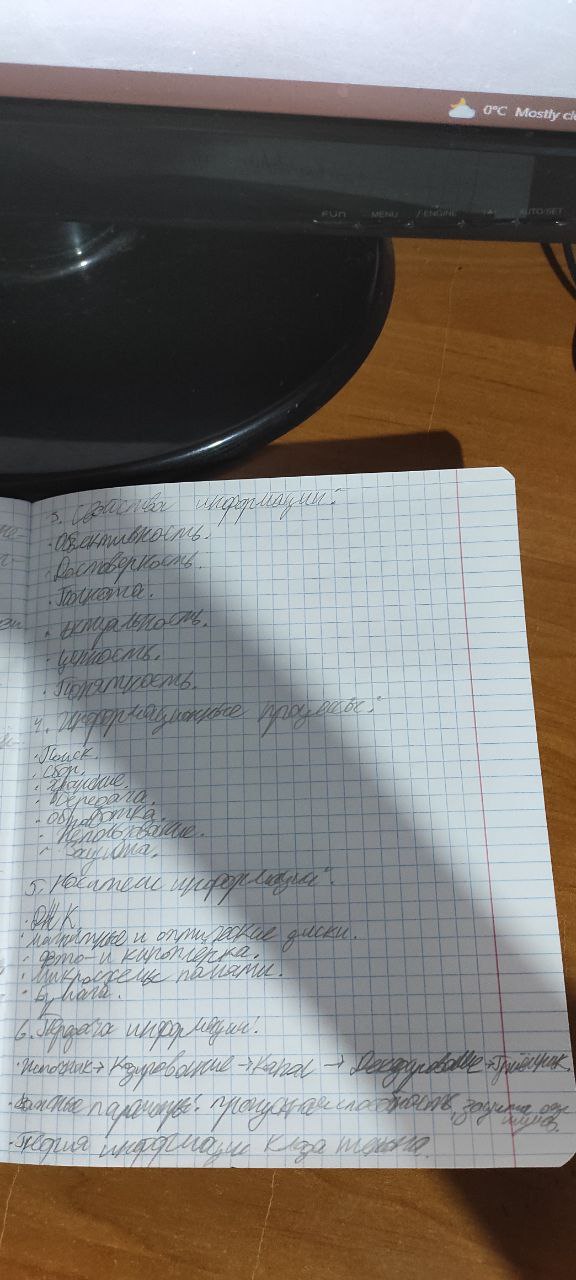 0°C Mostly cl
FUN MENU /ENGINE 1A AUTO/SET
3. Свойства информации:
· Объективность.
· Достоверность.
· Полнота.
· Актуальность.
· Ценность.
· Понятность.
4. Информационные процессы:
· Поиск.
· Сбор.
· Хранение.
· Передача.
· Обработка.
· Использование.
· Защита.
5. Носители информации:
· ДНК.
· Магнитные и оптические диски.
· Фото- и киноплёнка.
· Микросхемы памяти.
· Бумага.
6. Передача информации:
· Источник → Кодирование → Канал → Декодирование → Приёмник.
· Важные параметры: пропускная способность, защита от
шумов.
· Теория информации Клода